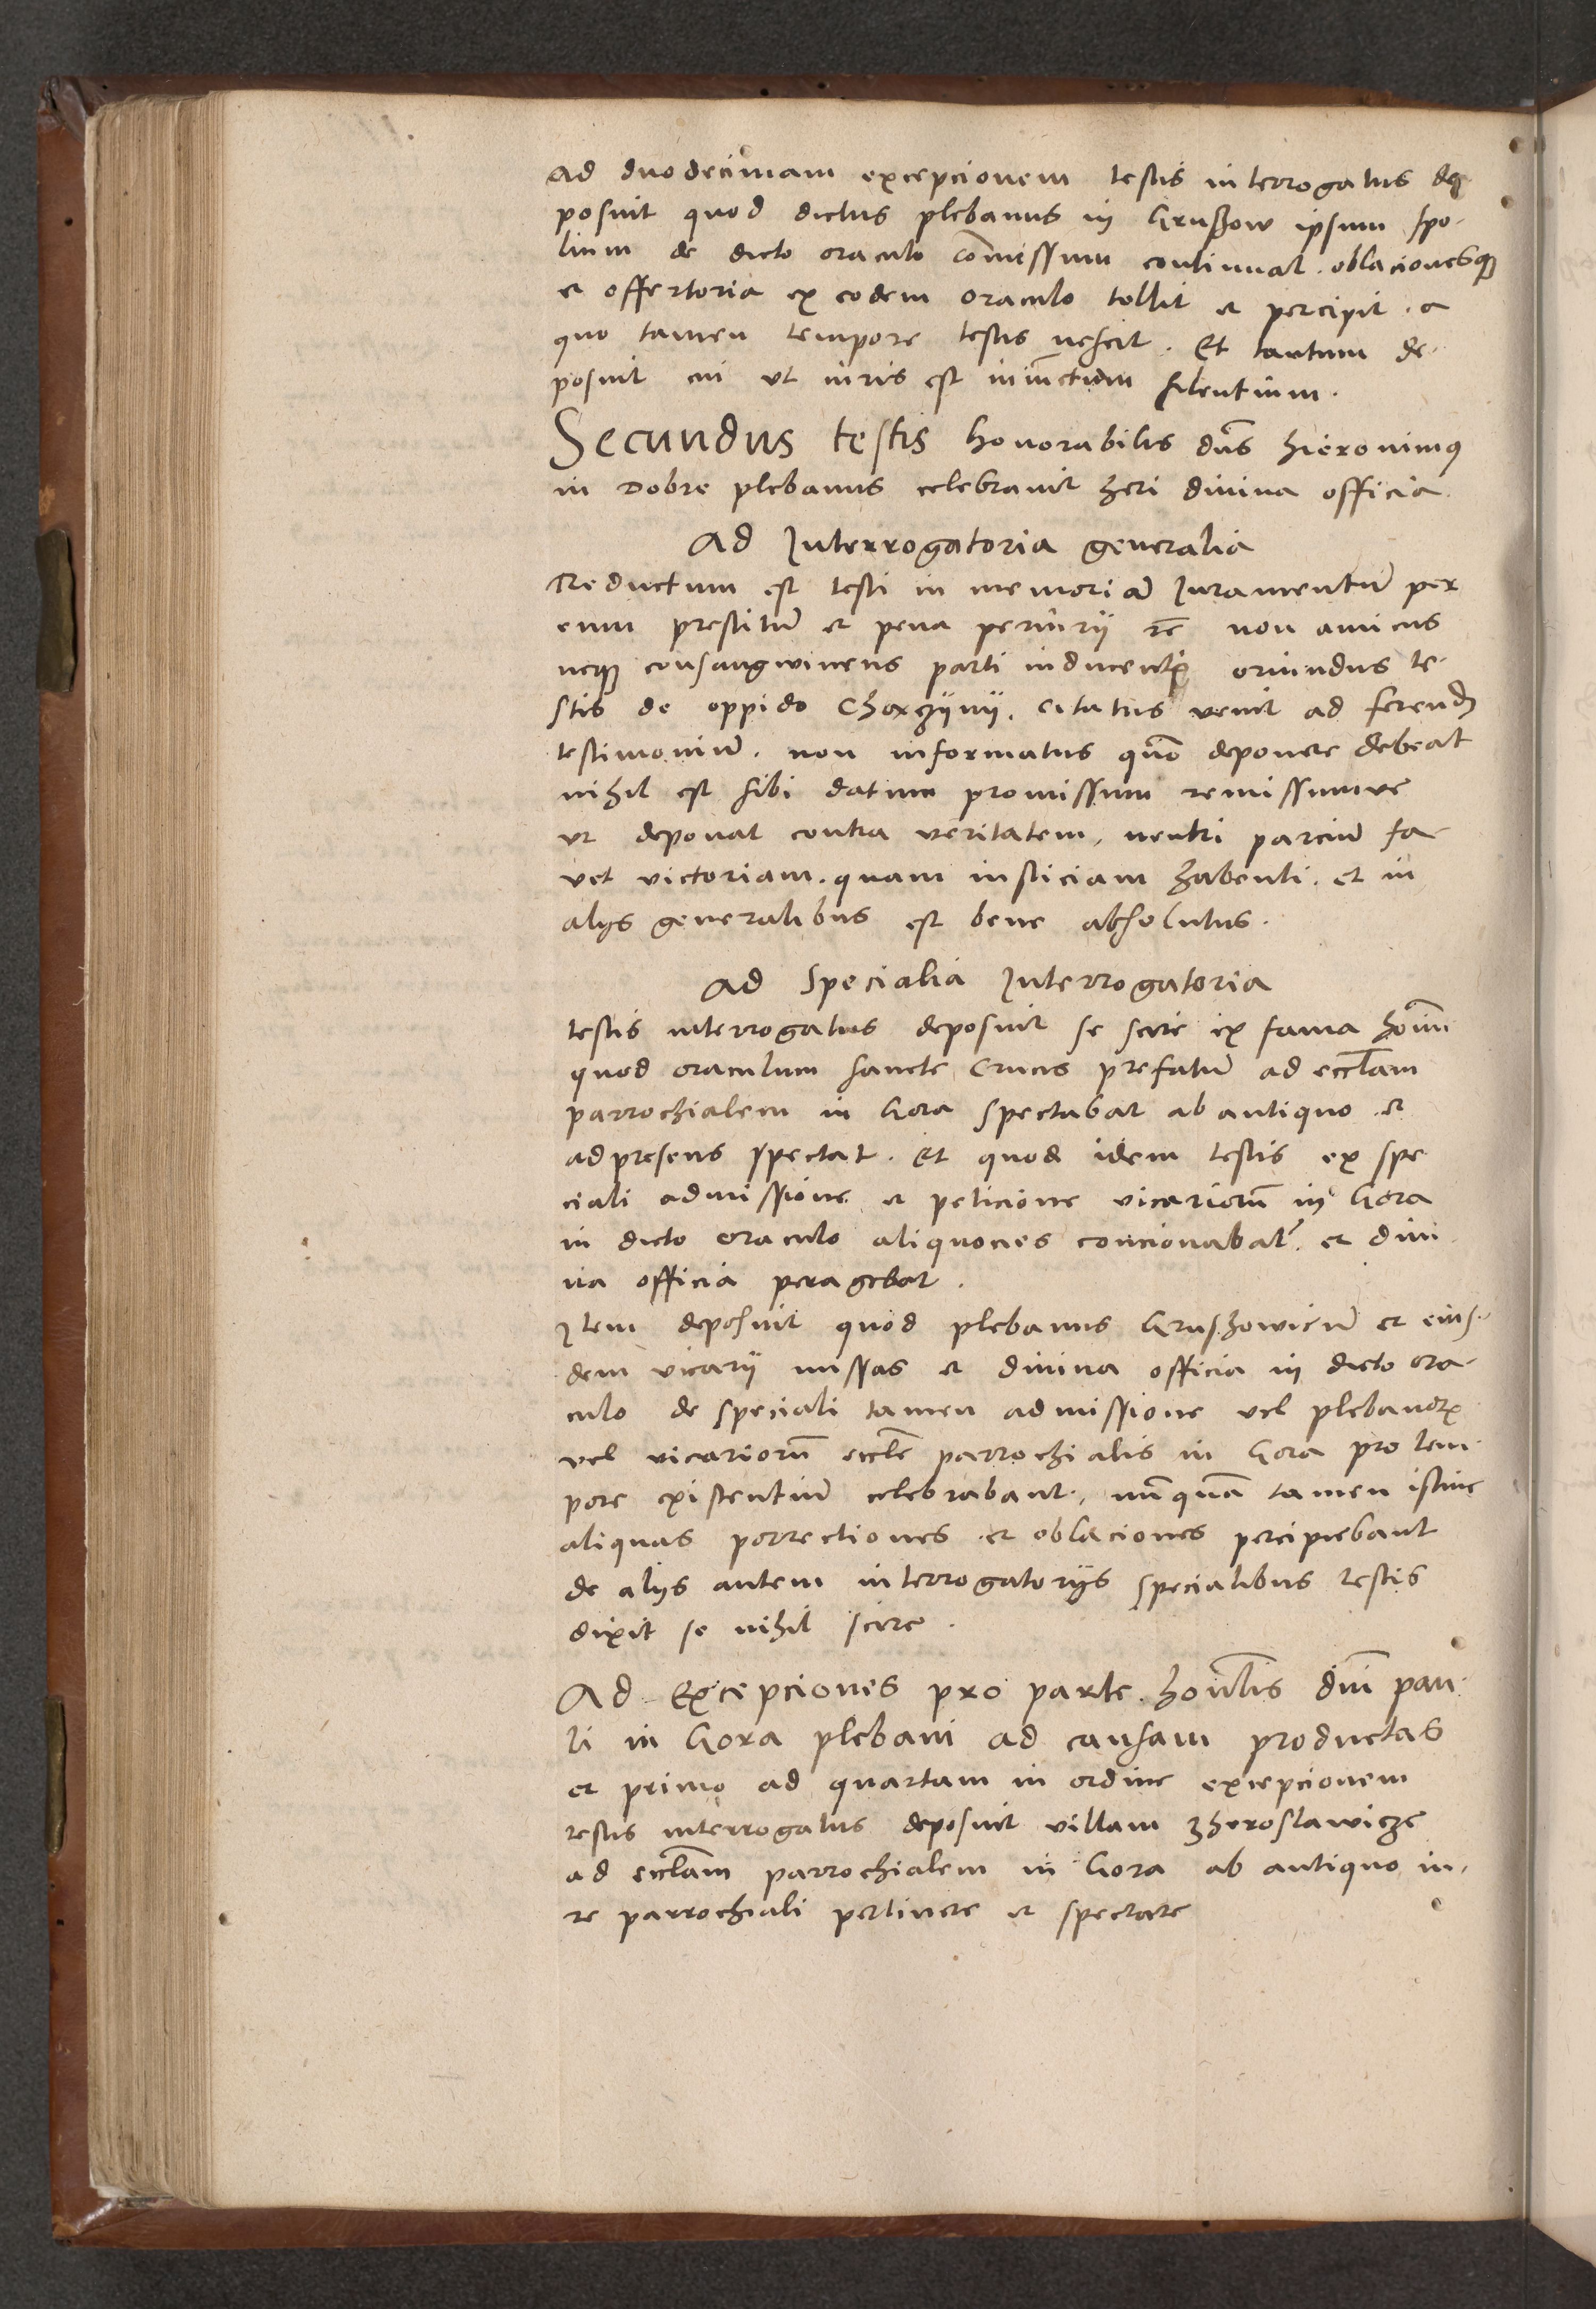 Ad duodecimam excepcionem testis interrogatus de-
posuit quod dictus plebanus in Grußow ipsum spo-
lium de dicto oraculo com̄issum continuat. oblacionesq̃
et offertoria ex eodem oraculo tollit et percipit. a
quo tamen tempore testis nescit. Et tantum de-
posuit cui ut iuris est iniūctum silentium.
Secundus testis honorabilis dn̄s hieronimꝯ
in Dobre plebanus celebravit heri divina officia.
Ad Interrogatoria generalia
Reductum est testi in memoriā Iuramentū per
eum prestitū et pena periurij rē non amicus
neq̃ consangwineus parti inducenti oriundus te-
stis de oppido Chorzijnij. citatus venit ad ferend
testimoniū. non informatus quō deponere debeat
nihil est sibi datum promissum remissumve
ut deponat contra veritatem, neutri parciū fa-
vet victoriam. quam iusticiam habenti. et in
alijs generalibus est bene absolutus.
Ad Specialia Interrogatoria
testis interrogatus deposuit se scire ex fama hōim
quod oraculum sancte Crucis prefatū ad eccl̄am
parrochialem in Gora spectabat ab antiquo et
ad presens spectat. Et quod idem testis ex spe
ciali admissione et peticione vicariorū in Gora
in dicto oraculo aliquocies concionabat̄. et divi
na officia peragebat.
Item deposuit quod plebanus Grushowicn̄ et eius-
dem vicarij missas et divina officia in dicto ora-
culo de speciali tamen admissione vel plebanoꝝ
vel vicariorū eccl̄e parrochialis in Gora pro tem-
pore existentiū celebrabant, nūquā tamen istinc
aliquas porrectiones et oblaciones percipiebant
de alijs autem interrogatorijs specialibus testis
dixit se nihil scire.
Ad Excepciones pro parte hon̄lis dn̄i pau-
li in Gora plebani ad causam productas
et primo ad quartam in ordine excepcionem
testis interrogatus deposuit villam Zheroslawicze
ad eccl̄am parrochialem in Gora ab antiquo iu-
re parrochiali pertinere et spectare